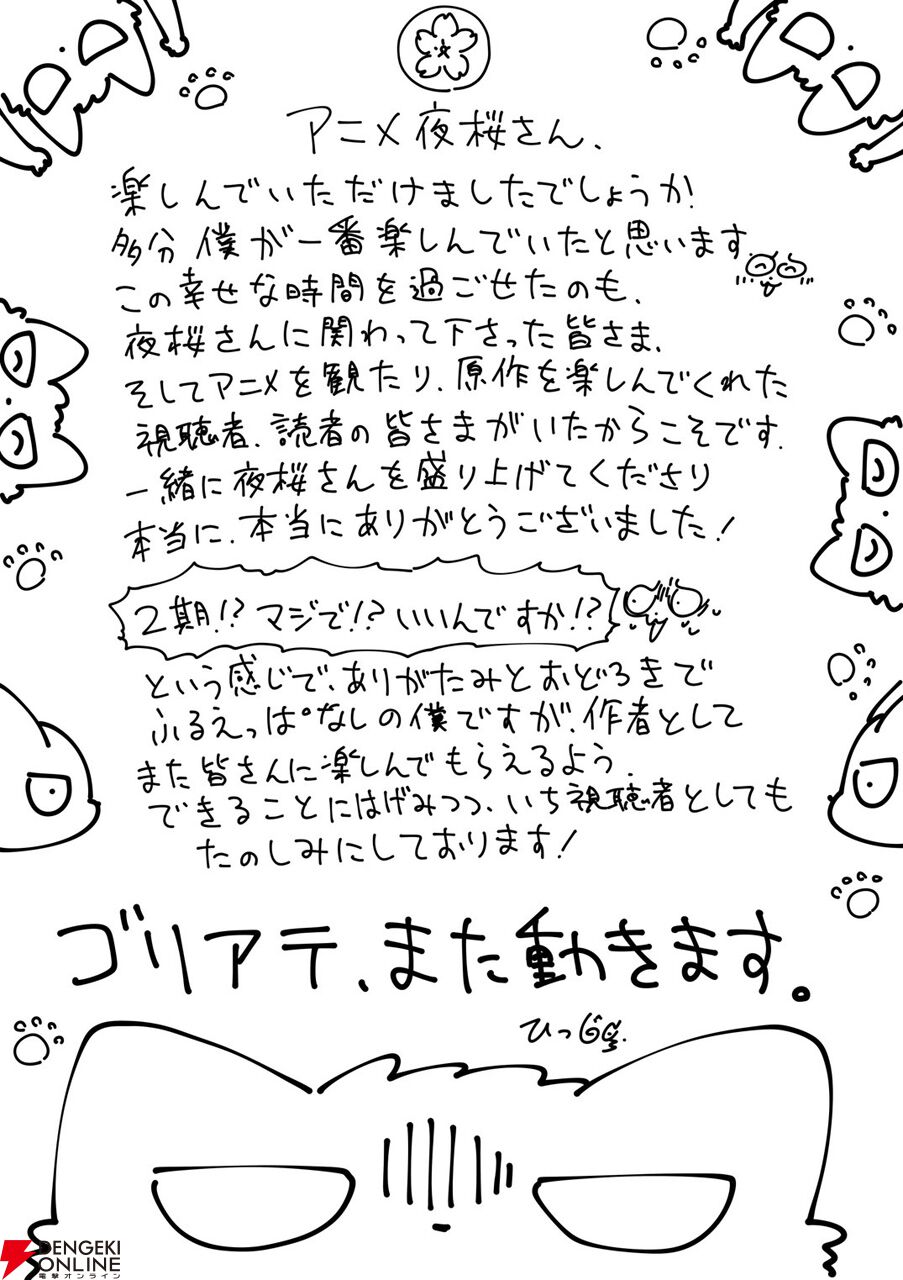 アニメ夜桜さん、
楽しんでいただけましたでしょうか?
多分僕が一番楽しんでいたと思います。
この幸せな時間を過ごせたのも、
夜桜さんに関わって下さった皆さま、
そしてアニメを観たり、原作を楽しんでくれた
視聴者、読者の皆さまがいたからこそです。
一緒に夜桜さんを盛り上げてくださり
本当に、本当にありがとうございました!
2期!?マジで!?いいんですか!?
という感じで、ありがたみとおどろきで
ふるえっぱなしの僕ですが、作者として
また皆さんに楽しんでもらえるよう、
できることにはげみつつ、いち視聴者としても
たのしみにしております!
ゴリアテ、また動きます。
ひつじ
DENGEKI
ONLINE
電撃オンライン